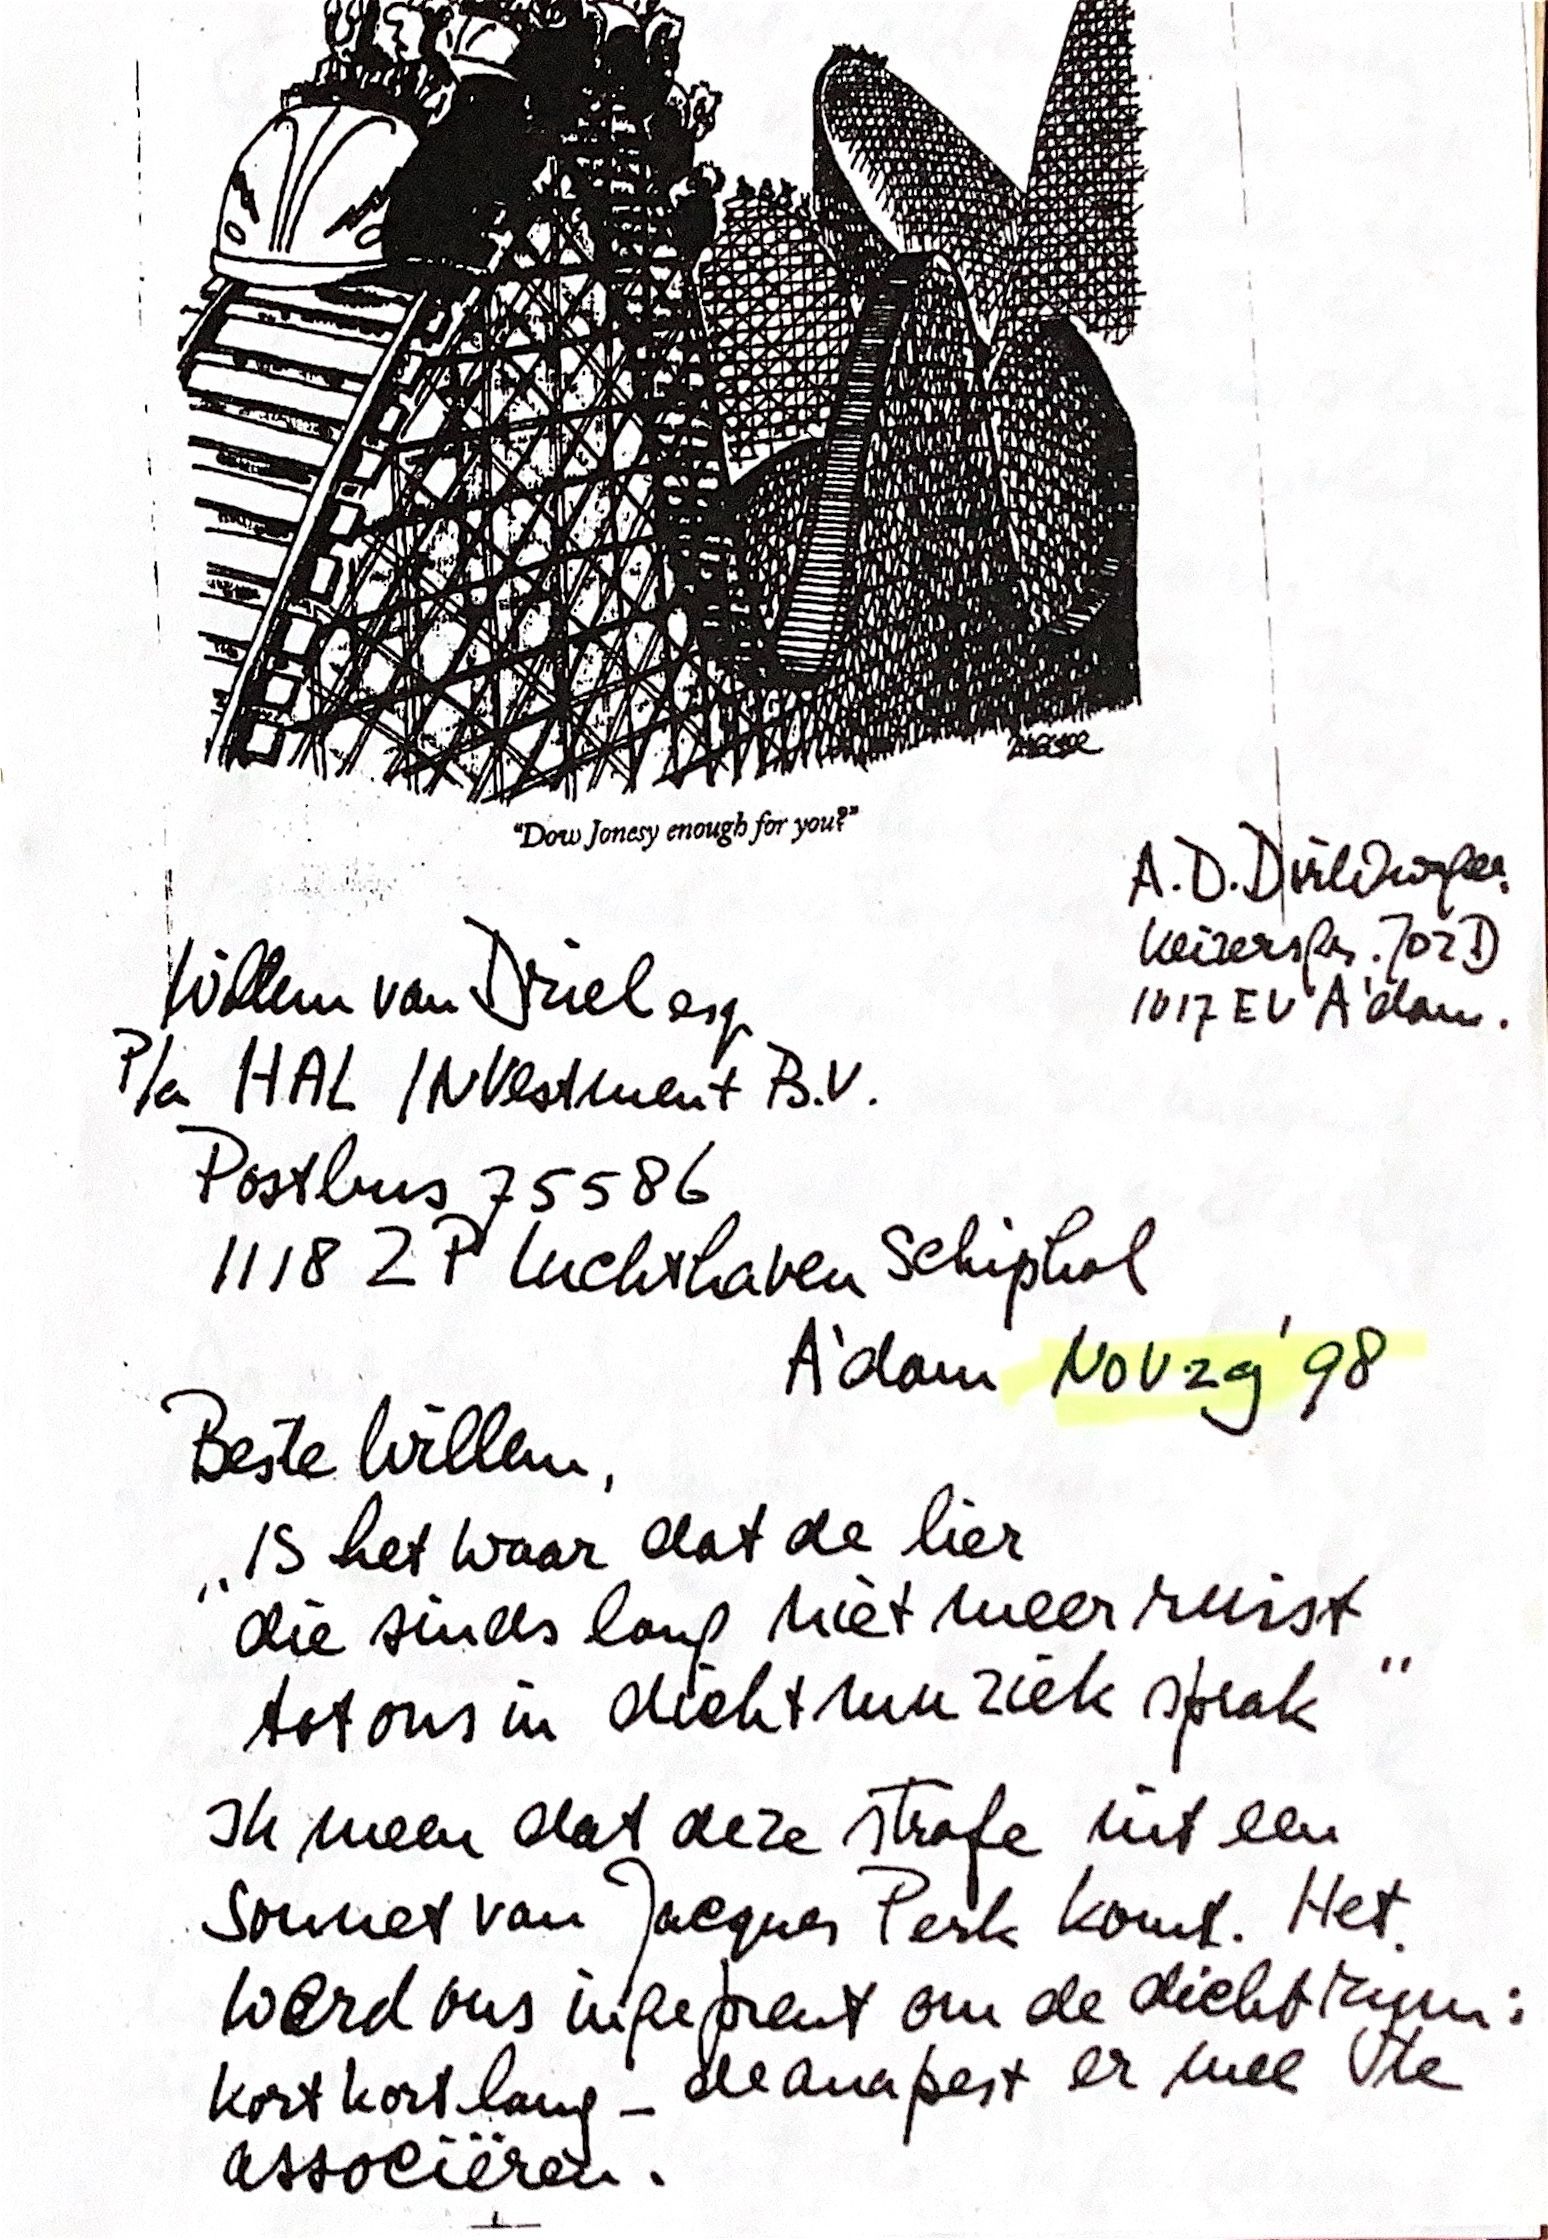 "Dow Jonesy enough for you?"
A.D.
Keizersgr. 702 D
1017 EV A'dam.
Willem van Driel esq
P/a HAL INVestment B.V.
Postbus 75586
1118 ZP Luchthaven Schiphol
A'dam NOV 29 '98
Beste Willem,
„IS het waar dat de lier
die sinds lang niet meer ruist
tot ons in dichtmuziek sprak"
Ik meen dat deze strofe uit een
Sonnet van Jacques Perk komt. Het
werd ons ingeprent om de dichtrym:
kort kort lang – de anapest er mee te
associëren.